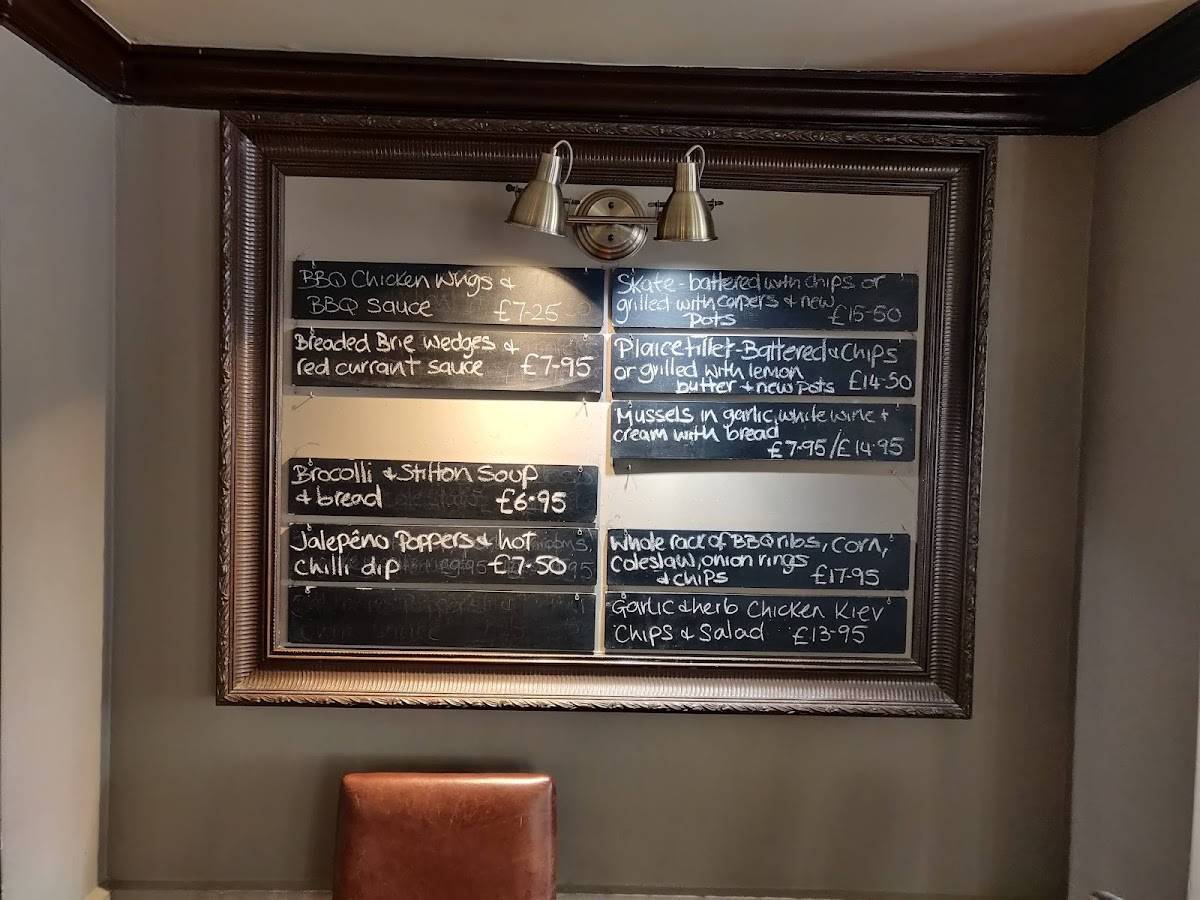 BBQ Chicken Wings &
BBQ Sauce £7-25
Breaded Brie wedges &
red currant sauce £7-95
Brocolli & Stilton Soup
& bread £6-95
Jalepêno Poppers & hot
chilli dip £7-50
Skate - battered with chips or
grilled with capers & new
pots £15-50
Plaice fillet - Battered & Chips
or grilled with lemon
butter + new pots £14-50
Mussels in garlic, white wine +
cream with bread
£7-95/£14-95
Whole rack of BBQ ribs, Corn,
Coleslaw, onion rings
& chips £17-95
Garlic & herb Chicken Kiev
Chips & Salad £13-95